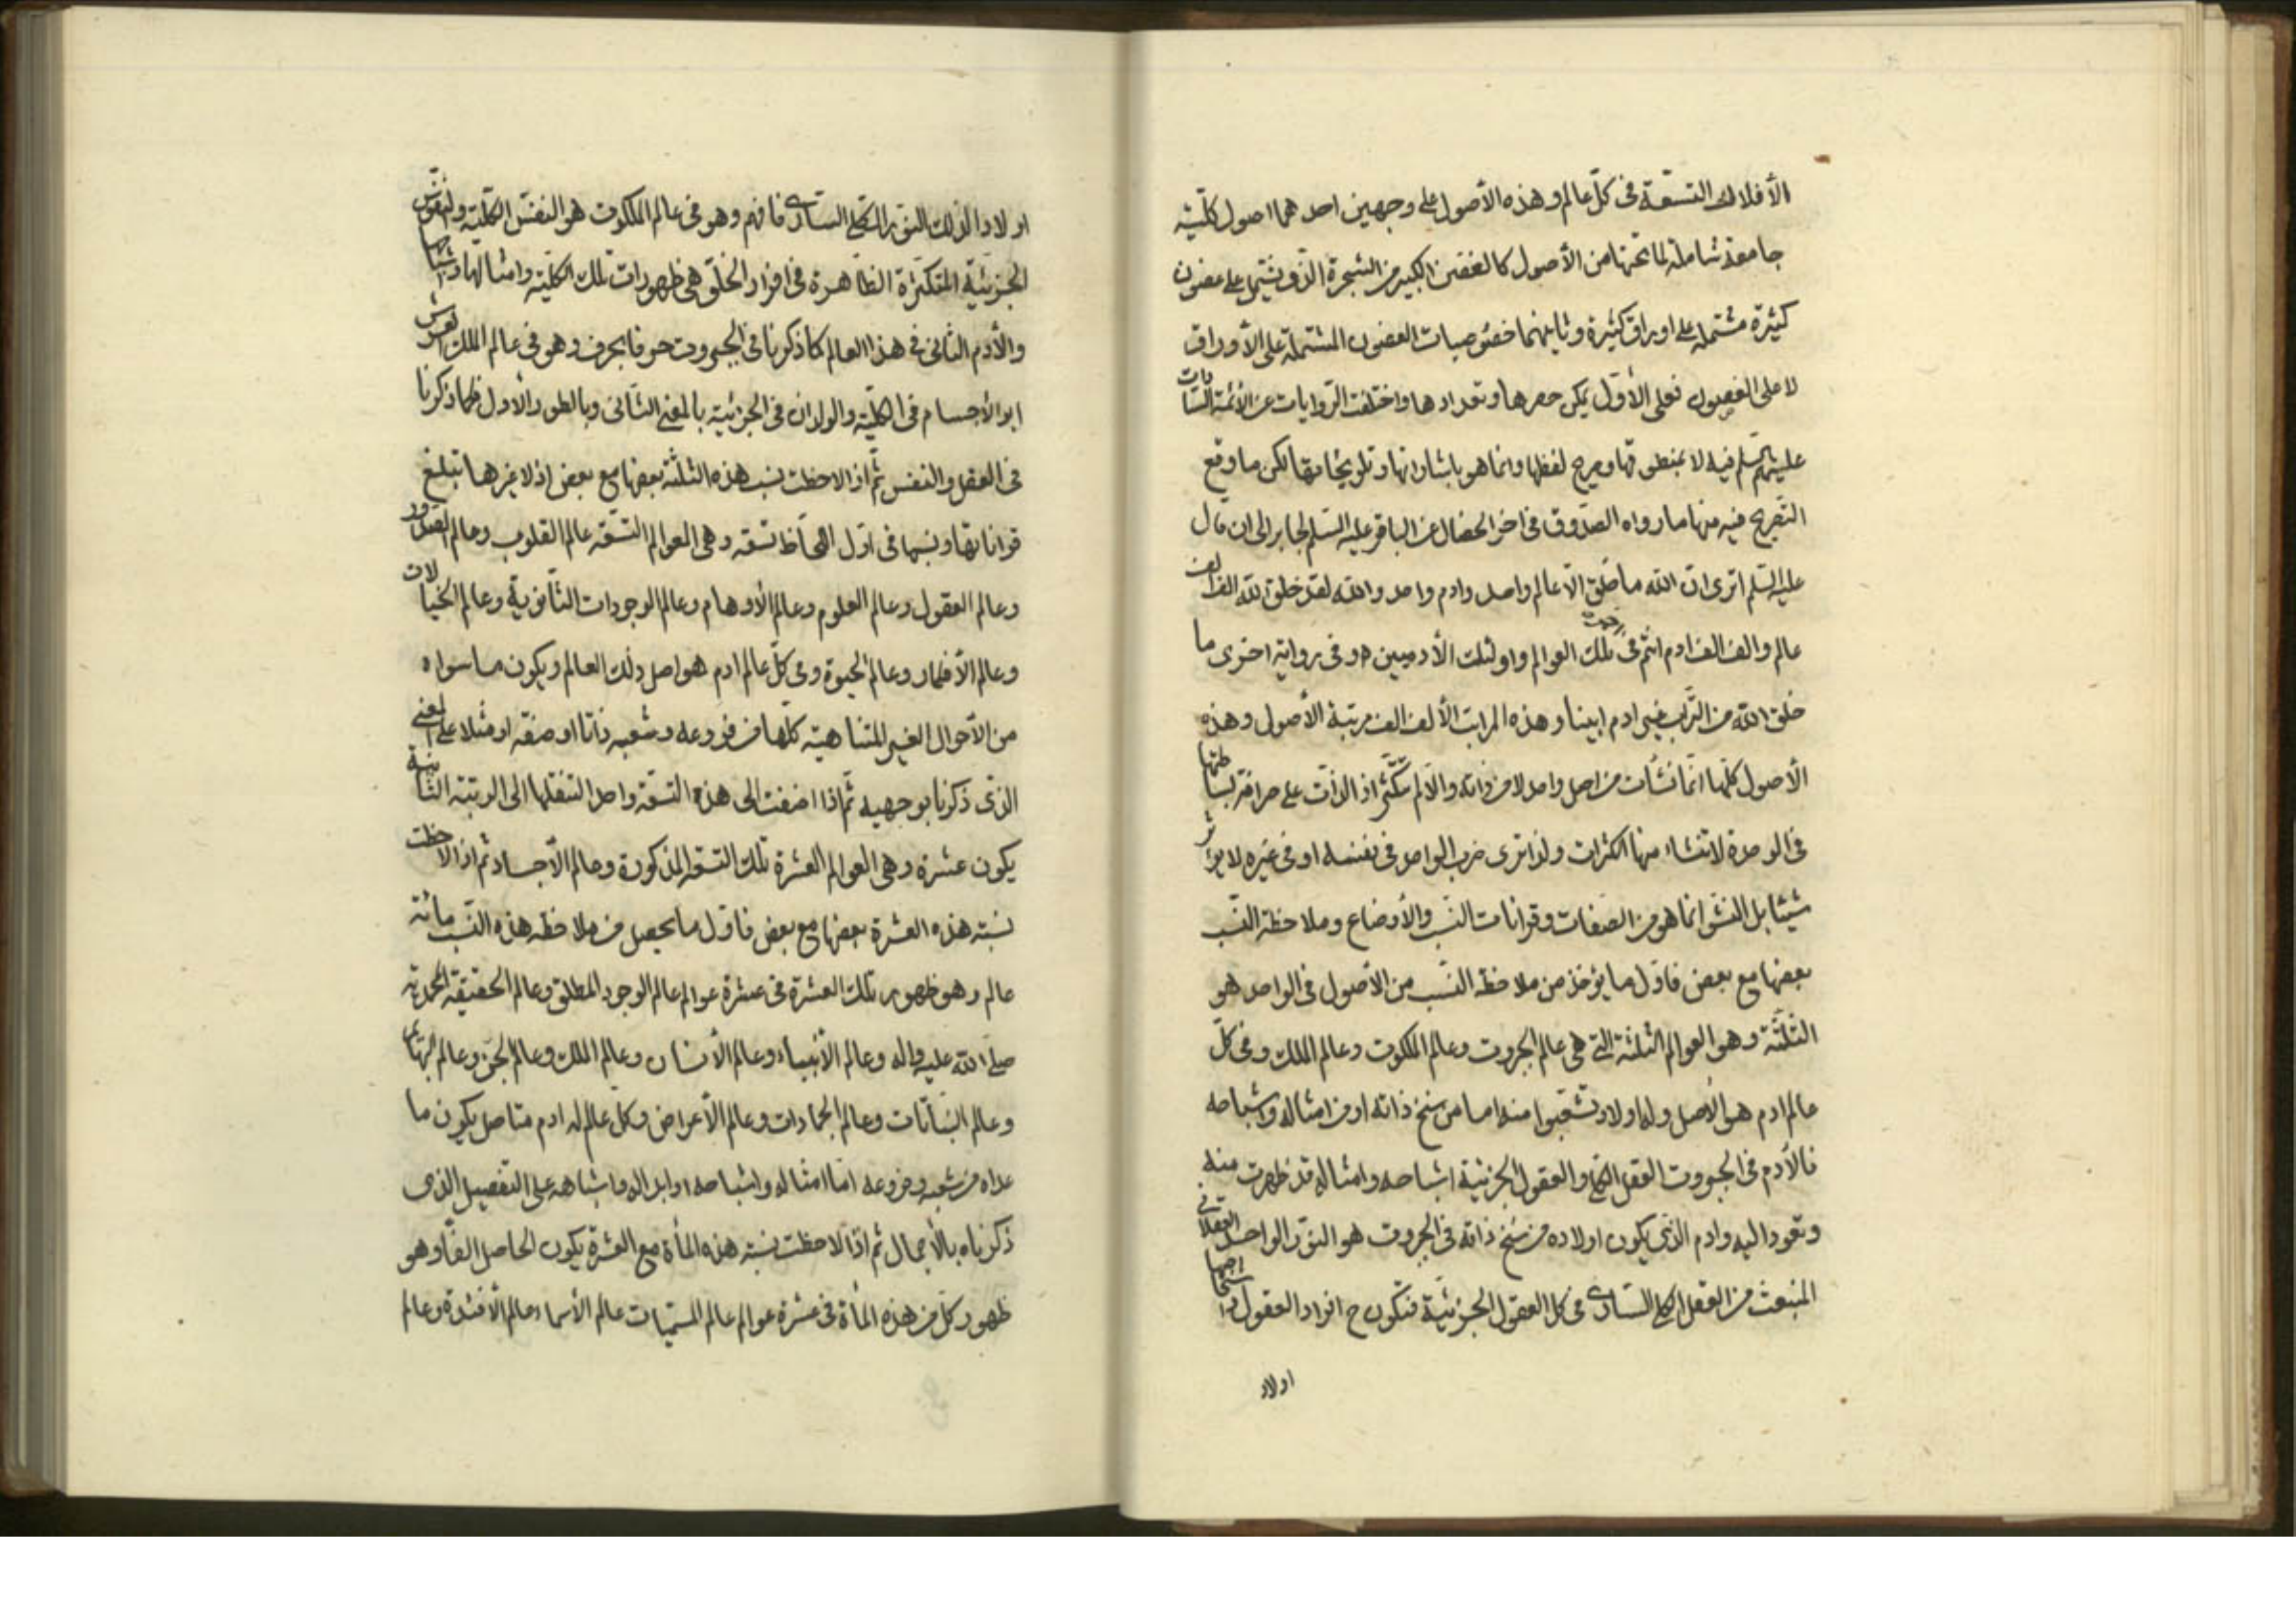 الأفلاك التسعة فى كلّ عالم وهذه الأصول على وجهين احدهما اصول كلّيّة
جامعة شاملة لما تحتها من الأصول كالغصن الكبير من الشجرة الذى يشتمل على غصون
كثيرة مشتملة على اوراق كثيرة وثانيهما خصوصيات الغصون المشتملة على الأوراق
لا على الغصون فعلى الأوّل يمكن حصرها وتعدادها واختلفت الروايات عن الأئمة السادات
عليهم السلم فيه لا بمنطوقها وصريح لفظها وانما هو باشاراتها وتلويحاتها لكن ما وقع
التصريح فيه منها ما رواه الصدوق فى اخر الخصال عن الباقر عليه السلم لجابر الى ان قال
عليه السلم اترى انّ الله ما خلق الّا عالم واحد وادم واحد والله لقد خلق الله الف الف
عالم والف الف ادم انتم فى اخر تلك العوالم واولئك الأدميين وفى رواية اخرى ما
خلق الله من التراب غير ادم ابينا وهذه المراتب الألف الف مرتبة الأصول وهذه
الأصول كلّها انّما نشأت من اصل واحد لا من ذاته والّا لم يتكثّر اذ الذات على صرافة بساطتها
فى الوحدة لا تنشاء منها الكثرات ولذا ترى ضرب الواحد فى نفسه او فى غيره لا يؤثر
شيئا بل النشو انما هو من الصفات وقرانات النسب والأوضاع وملاحظة النسب
بعضها مع بعض فاوّل ما يؤخذ من ملاحظة النسب من الأصول فى الواحد هو
الثلثة وهو العوالم الثلثة التى هى عالم الجبروت وعالم الملكوت وعالم الملك وفى كلّ
عالم ادم هو الأصل وله اولاد تشعّبوا منه اما من سنخ ذاته او من امثاله واشباحه
فالأدم فى الجبروت العقل الكلى والعقول الجزئية اشباحه وامثاله قد ظهرت منه
وتعود اليه وادم الذى يكون اولاده من سنخ ذاته فى الجبروت هو النور الواحد العقلانى
المنبعث من العقل الكلى السارى فى كل العقول الجزئية فتكون ح افراد العقول واشخاصها
اولاد
اولادا لذلك النور الكلى السارى فافهم وهو فى عالم الملكوت هو النفس الكلّية والنفوس
الجزئية المتكثرة الظاهرة فى افراد الخلق هى ظهورات تلك الكلّية وامثالها واشباحها
والأدم الثانى فى هذا العالم كما ذكرنا فى الجبروت حرفا بحرف وهو فى عالم الملك العرش
ابو الأجسام فى الكلية والولدان فى الجزئية بالمعنى الثانى وبالطور الأول فكما ذكرنا
فى العقل والنفس ثم اذا لاحظت نسب هذه الثلثة بعضها مع بعض اذ لا غيرها تبلغ
قراناتها ونسبها فى اوّل اللحاظ تسعة وهى العوالم التسعة عالم القلوب وعالم الصدور
وعالم العقول وعالم العلوم وعالم الأوهام وعالم الوجودات الثانوية وعالم الخيالات
وعالم الأفكار وعالم الحيوة وفى كلّ عالم ادم هو اصل ذلك العالم ويكون ما سواه
من الأحوال الغير المتناهية كلّها من فروعه وشعبه ذاتا او صفة او مثلا على المعنى
الذى ذكرنا بوجهيه ثم اذا اضفت الى هذه التسعة واحدا لتنقلها الى الرتبة الثانية
يكون عشرة وهى العوالم العشرة تلك التسعة المذكورة وعالم الأجساد ثم اذا لاحظت
نسبة هذه العشرة بعضها مع بعض فاول ما يحصل من ملاحظة هذه النسب مائة
عالم وهو ظهور تلك العشرة فى عشرة عوالم عالم الوجود المطلق وعالم الحقيقة المحمدية
صلى الله عليه واله وعالم الأنبياء وعالم الأنسان وعالم الملك وعالم الجنّ وعالم البهائم
وعالم النباتات وعالم الجمادات وعالم الأعراض وكلّ عالم له ادم متاصل يكون ما
عداه من شعبه وفروعه امّا امثاله واشباحه او ابداله واشباهه على التفصيل الذى
ذكرناه بالأجمال ثم اذا لاحظت نسبة هذه المأة مع العشرة يكون الحاصل الفا وهو
ظهور كلّ من هذه المأة فى عشرة عوالم عالم المسمّيات عالم الأسماء عالم الأفئدة وعالم